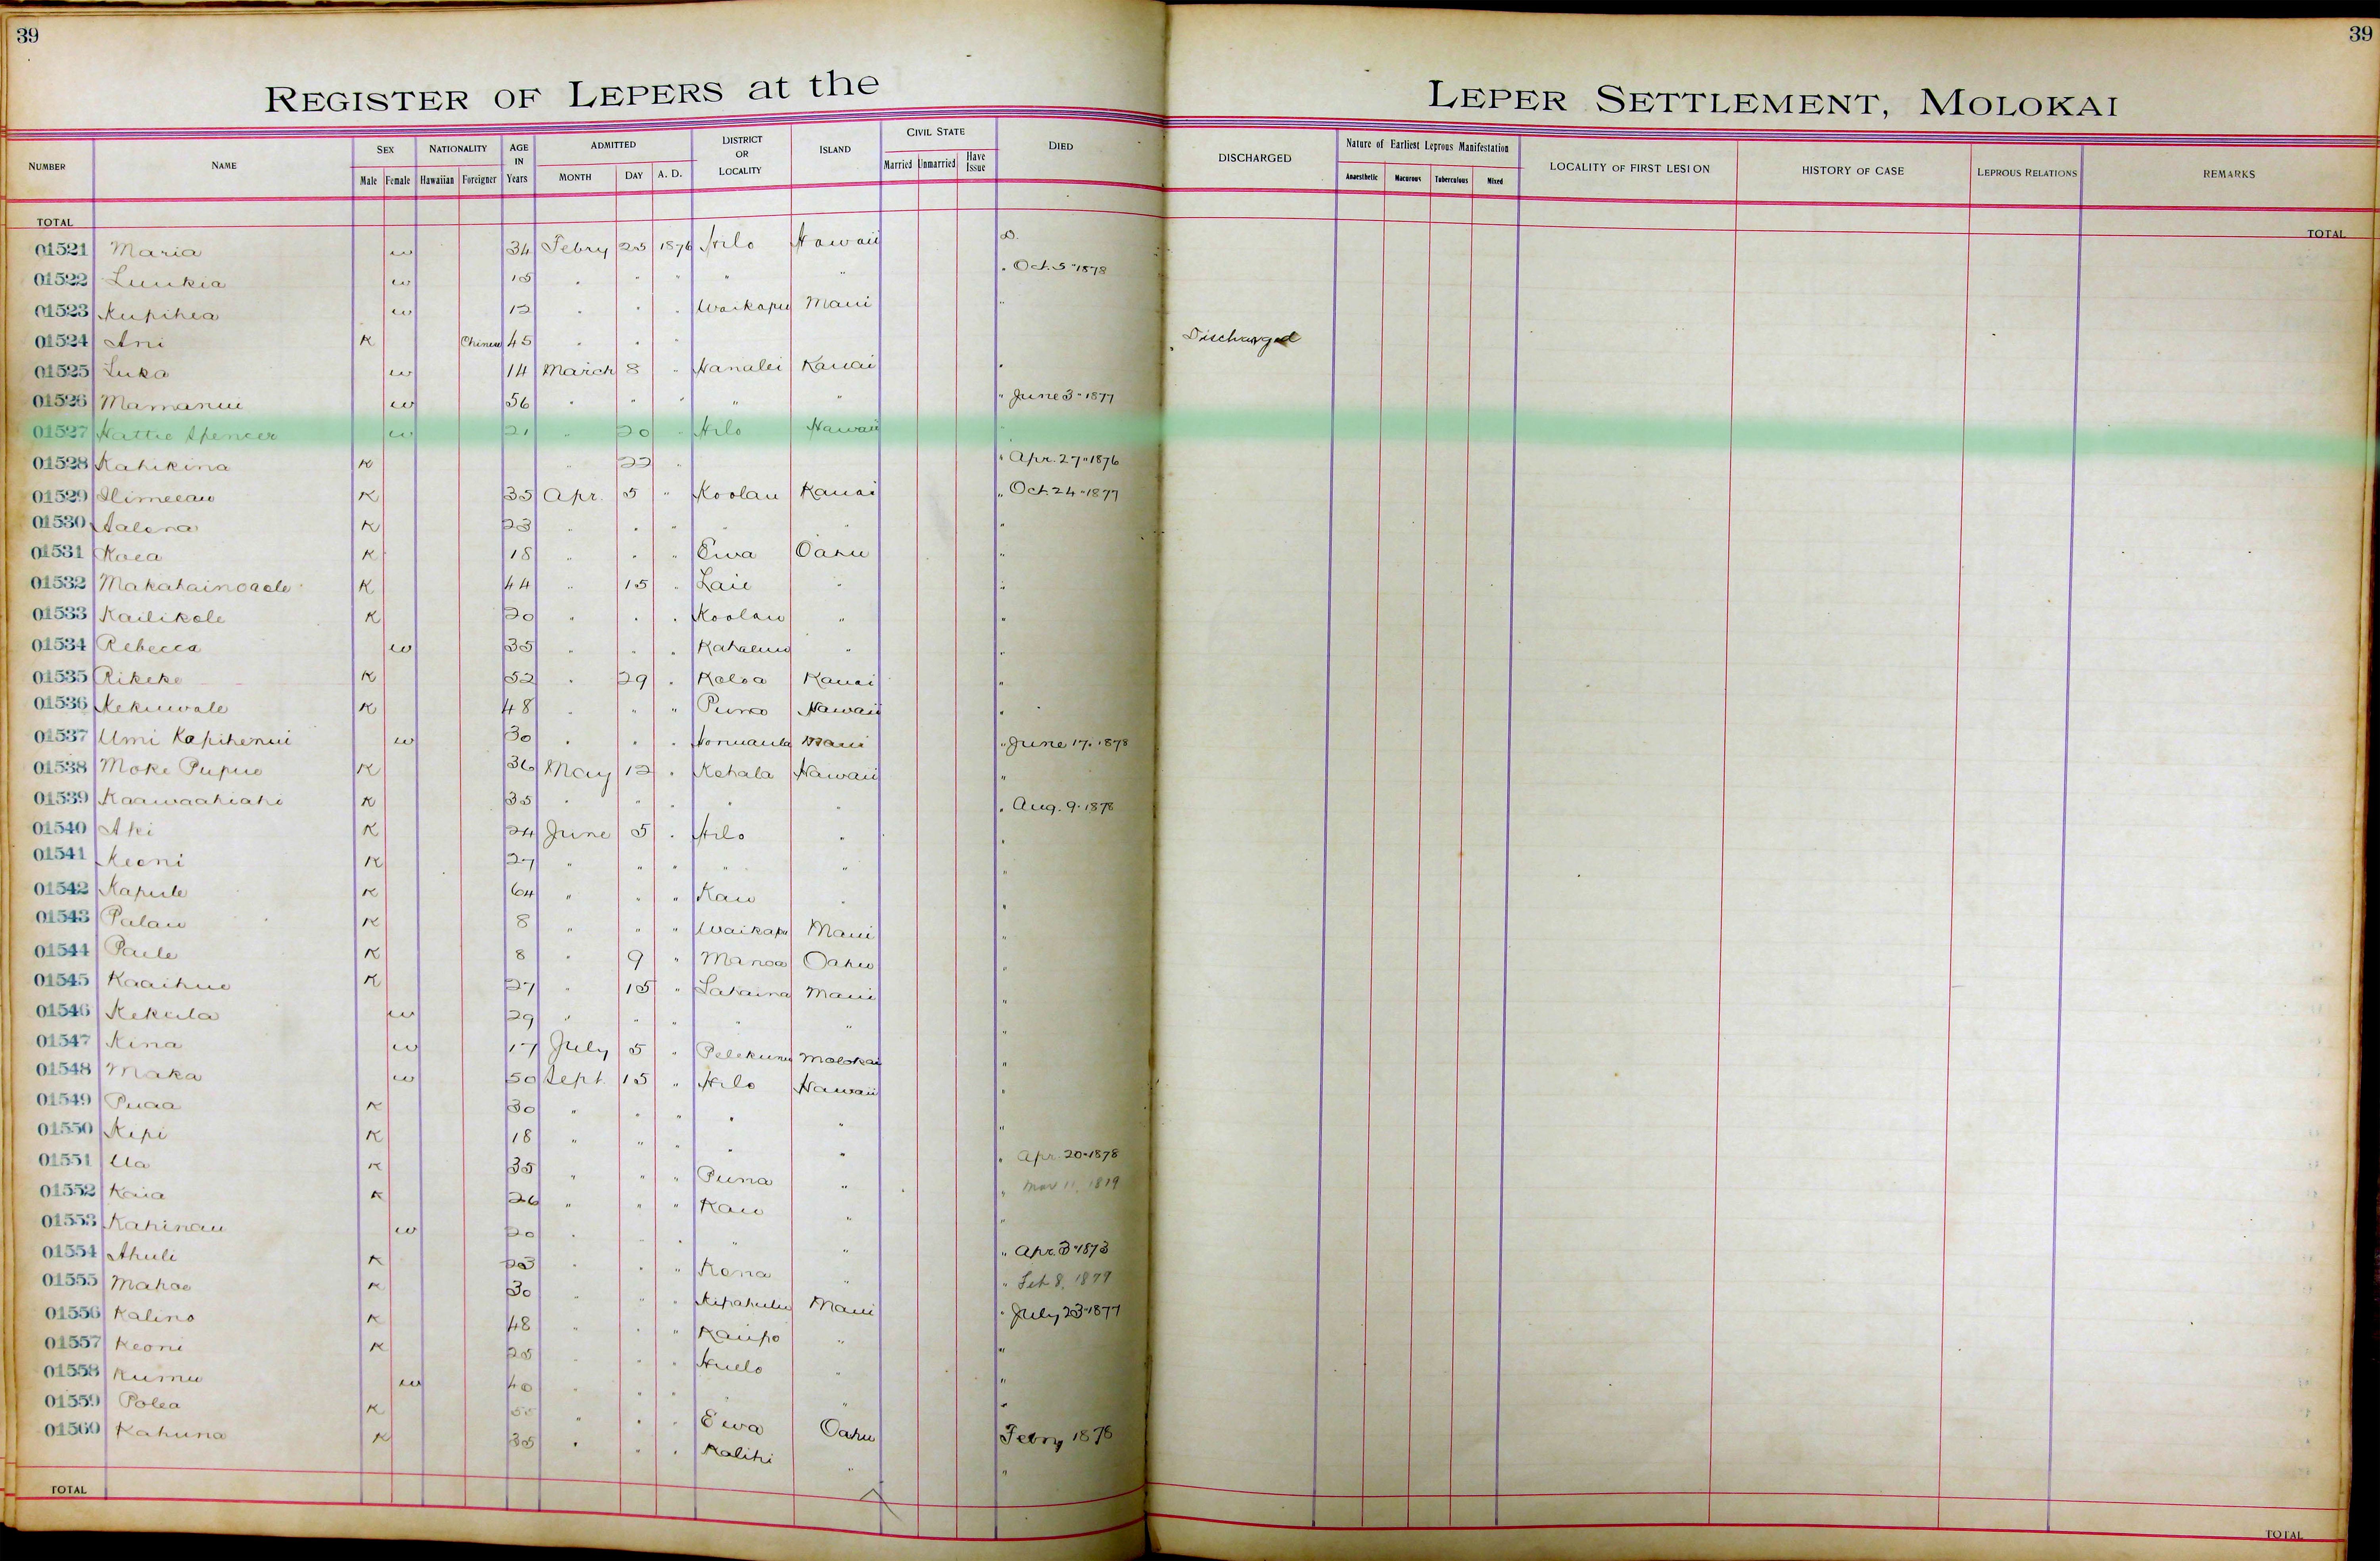 39
39
REGISTER OF LEPERS at the LEPER SETTLEMENT, MOLOKAI
NUMBER NAME SEX Male Female NATIONALITY Hawaiian Foreigner AGE IN Years ADMITTED MONTH DAY A. D. DISTRICT OR LOCALITY ISLAND CIVIL STATE Married Unmarried Have Issue DIED DISCHARGED Nature of Earliest Leprous Manifestation Anaesthetic Macurous Tuberculous Mixed LOCALITY OF FIRST LESION HISTORY OF CASE LEPROUS RELATIONS REMARKS
TOTAL TOTAL
01521 Maria w 34 Febry 25 1876 Hilo Hawaii D.
01522 Luukia w 15 " " " " " " Oct. 5 " 1878
01523 Kupihea w 12 " " " Waikapu Maui "
01524 Ani K Chinese 45 " " " Discharged
01525 Luka w 14 March 8 " Hanalei Kauai "
01526 Mamanui w 56 " " " " " " June 3 " 1877
01527 Hattie Spencer w 21 " 20 " Hilo Hawaii "
01528 Kahikina K " 22 " " Apr. 27 " 1876
01529 K 35 Apr. 5 " Koolau Kauai " Oct. 24 " 1877
01530 Aalona K 23 " " " " " "
01531 Koea K 18 " " " Ewa Oahu "
01532 Makahainoaole K 44 " 15 " Laie " "
01533 Kailikole K 20 " " " Koolau " "
01534 Rebecca w 35 " " " "  "
01535 Rikeke K 52 " 29 " Koloa Kauai "
01536 Kekuwale K 48 " " " Puna Hawaii "
01537 Umi Kapihenui w 30 " " " Honuaula Maui " June 17 " 1878
01538 Moke Pupuo K 36 May 12 " Kohala Hawaii "
01539 Kaawaahiahi K 35 " " " " " " Aug. 9 " 1878
01540 Aki K 24 June 5 " Hilo " "
01541 Keoni K 27 " " " " " "
01542 Kapule K 64 " " " Kau " "
01543 Palau K 8 " " " Waikapu Maui "
01544 Paule K 8 " 9 " Manoa Oahu "
01545 Kaaihue K 27 " 15 " Lahaina Maui "
01546 Kekula w 29 " " " " " "
01547 Kina w 17 July 5 " Pelekunu Molokai "
01548 Maka w 50 Sept. 15 " Hilo Hawaii "
01549 Puaa K 30 " " " " " "
01550 Kepi K 18 " " " " " "
01551 Ua K 35 " " " Puna " " Apr. 20 " 1878
01552 Kaia K 26 " " " Kau " " Mar 11, 1879
01553 Kahinau w 20 " " " " " "
01554 Ahuli K 23 " " " Kona " " Apr. 3 " 1873
01555 Mahoe K 30 " " " Kipahulu Maui " Feb 8, 1879
01556 Kalino K 48 " " " Kaupo " " July 23 " 1877
01557 Keoni K 25 " " " Huelo " "
01558 Kumu w 40 " " " " "
01559 Polea K 55 " " " Ewa Oahu "
01560 Kahuna K 35 " " " Kalihi " Febry 1878 "
TOTAL TOTAL